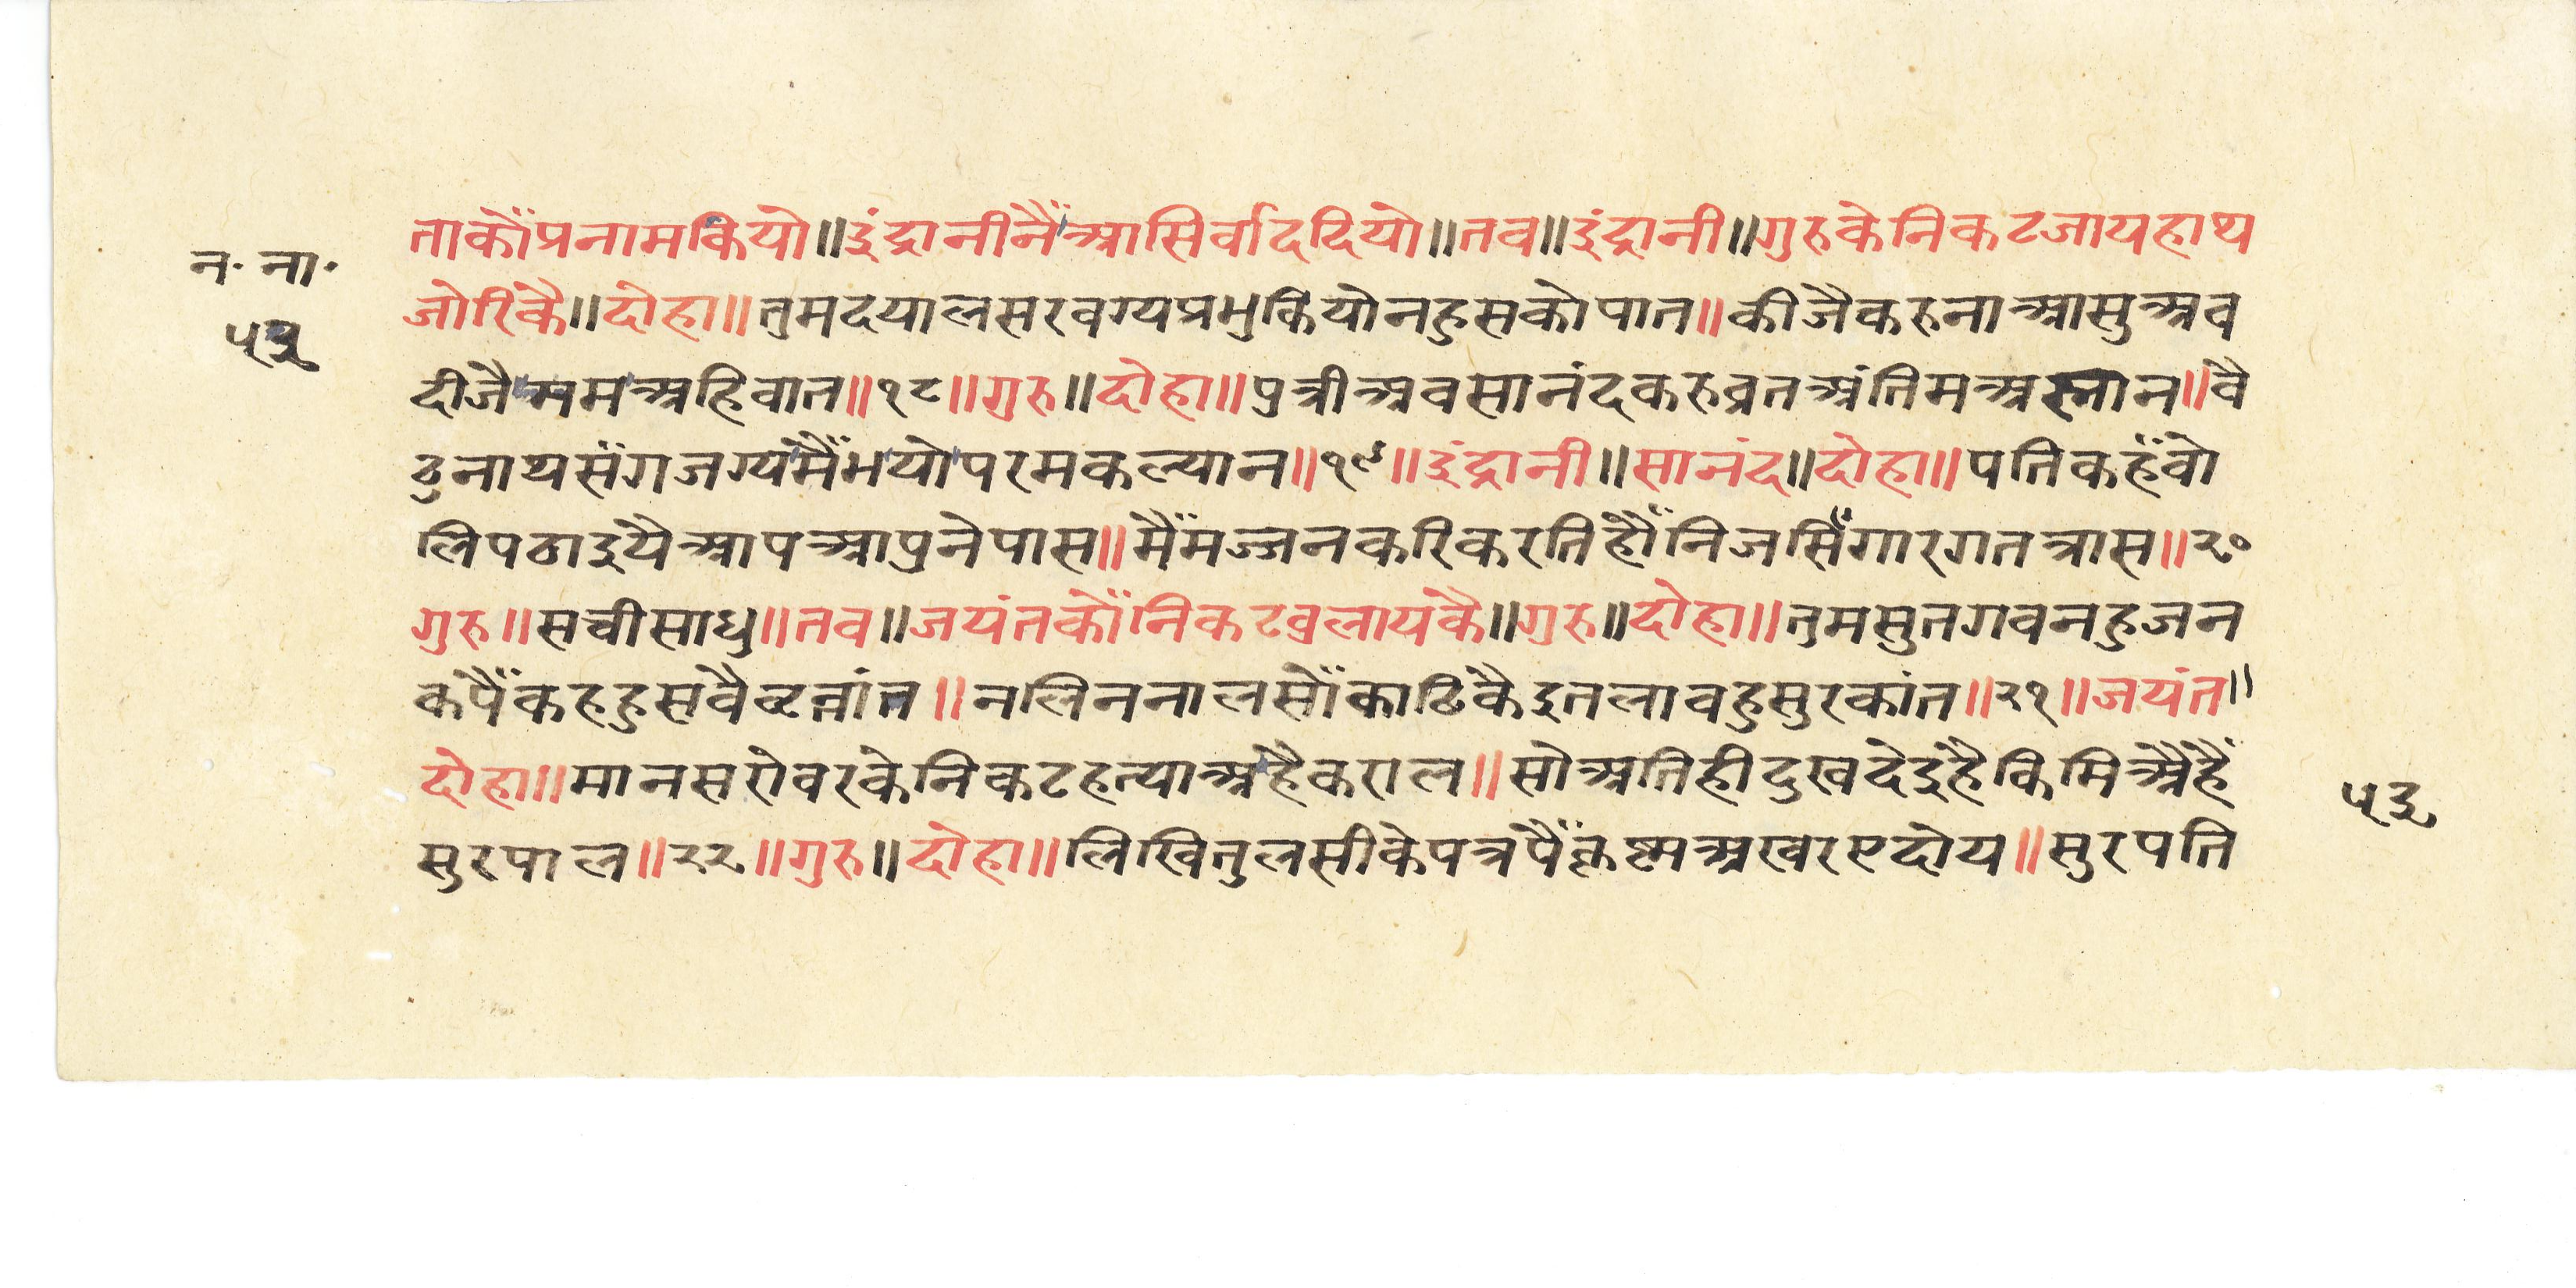 ताकौंप्रनामकियो॥इंद्रानीनैंआसिर्वाददियो॥तव॥इंद्रानी॥गुरुकेनिकटजायहाथ
न॰ ना॰
जोरिकै॥दोहा॥तुमदयालसरवग्यप्रभुकियोनहुसकोपात॥कीजैकरुनाआसुअव
दीजैममअहिवात॥१८॥गुरु॥दोहा॥पुत्रीअवसानंदकरुव्रतअंतिमअस्नान॥वै
ठुनाथसंगजग्यमैंभयोपरमकल्यान॥१९॥इंद्रानी॥सानंद॥दोहा॥पतिकहंवो
लिपठाइयैआपआपुनेपास॥मैंमज्जनकरिकरतिहौंनिजसिंगारगतत्रास॥२०
गुरु॥सचीसाधु॥तव॥जयंतकौंनिकटवुलायकै॥गुरु॥दोहा॥तुमसुतगवनहुजन
कपैंकहहुसवैव्रत्तांत॥नलिननालसोंकाढिकैइतलावहुसुरकांत॥२१॥जयंत॥
दोहा॥मानसरोवरकेनिकटहत्याअहैकराल॥सोअतिहीदुखदेइहैकिमिअैहैं
५३
सुरपाल॥२२॥गुरु॥दोहा॥लिखितुलसीकेपत्रपैंकृष्मअखरएदोय॥सुरपति